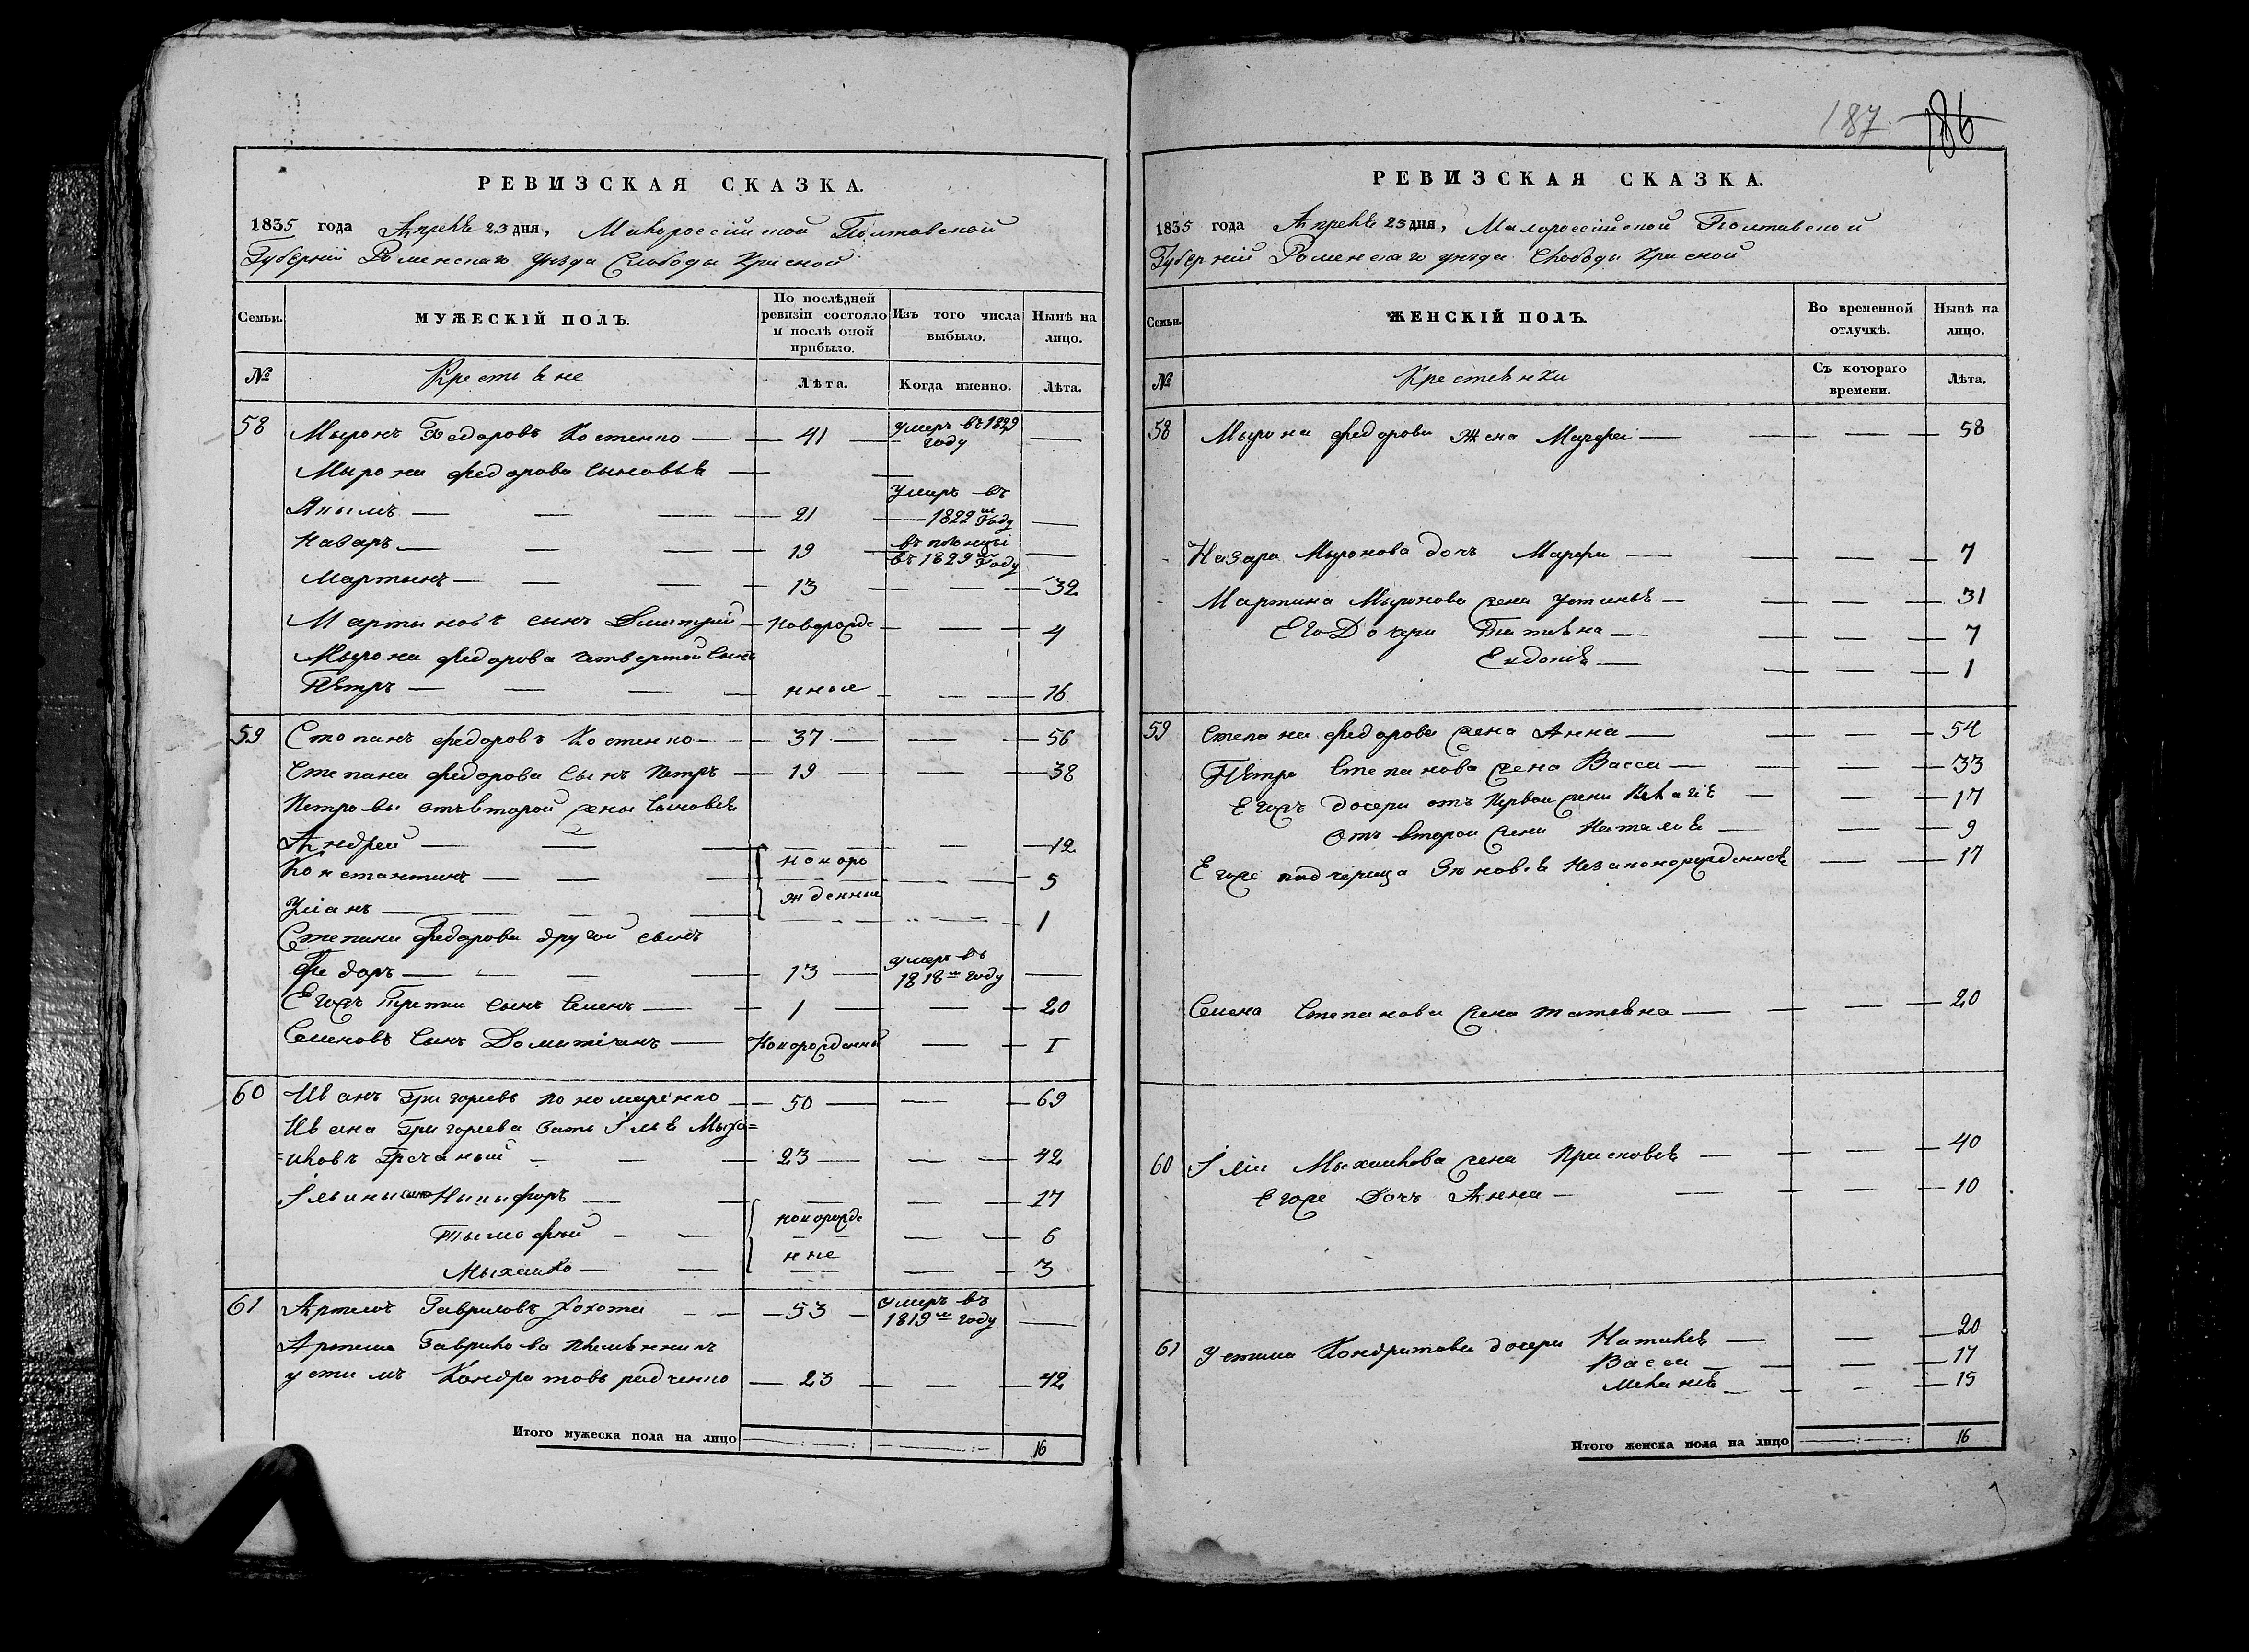 187 186
РЕВИЗСКАЯ СКАЗКА.
1835 года Апрелѣ 23 дня, Малороссійской Полтавской
Губерніи Роменскаго уѣзда Слободы Красной
Семьи.
МУЖЕСКІЙ ПОЛЪ.
По послѣдней ревизіи состояло и послѣ оной прибыло.
Изъ того числа выбыло.
Нынѣ на лицо.
№ Крестьѣне Лѣта. Когда именно. Лѣта.
58 Мыронъ Федоровъ Костенко 41 умеръ въ 1829 году
Мырона Федорова сыновьѣ
Якымъ 21 умеръ въ 1822м году
Назаръ 19 въ 1829м году
Мартынъ 13 32
Мартыновъ сынъ Дмитрій новорожде 4
Мырона Федорова четвертой сынъ
Пѣтръ нные 16
59 Степанъ Федоровъ Костенко 37 56
Степана Федорова сынъ Петръ 19 38
Петровы отъ второй жены сыновьѣ
Андрей 12
Константинъ новоро 5
Уліанъ жденные 1
Степана Федорова другой сынъ
Федоръ 13 умеръ въ 1818м году
Егожъ третий сынъ Семенъ 1 20
Семеновъ сынъ Домитіанъ новорожденный 1
60 Иванъ Григорьевъ Пономаренко 50 69
Ивана Григорьева зять Ільѣ Мыха=
=йловъ Гречаный 23 42
Ільины сыны Ныкыфоръ 17
Тымофѣй новорожде 6
Мыхайло нне 3
61 Артемъ Гавриловъ Хохота 53 умеръ въ 1819м году
Артема Гаврилова племѣнникъ
Устимъ Кондратовъ Радченко 23 42
Итого мужеска пола на лицо 16
РЕВИЗСКАЯ СКАЗКА.
1835 года Апрелѣ 23 дня, Малороссійской Полтавской
Губерніи Роменскаго уѣзда Слободы Красной
Семьи.
ЖЕНСКІЙ ПОЛЪ.
Во временной отлучкѣ.
Нынѣ на лицо.
№ Крестьѣнки Съ котораго времени. Лѣта.
58 Мырона Федорова жена Марфа 58
Назара Мыронова дочь Марфа 7
Мартина Мыронова жена Устиньѣ 31
Его Дочери Татіѣна 7
Евдокіѣ 1
59 Степана Федорова жена Анна 54
Пѣтра Степанова жена Васса 33
Егожъ дочери отъ первой жены Пелагіѣ 17
отъ второй жены Наталиѣ 9
Егоже падчерица Зѣновіѣ незаконорожденнаѣ 17
Семена Степанова жена Татіѣна 20
60 Іліи Мыхайлова жена Присковьѣ 40
Егоже Дочь Анна 10
61 Устима Кондратова дочери Наталіѣ 20
Васса 17
Меланіѣ 15
Итого женска пола на лицо 16